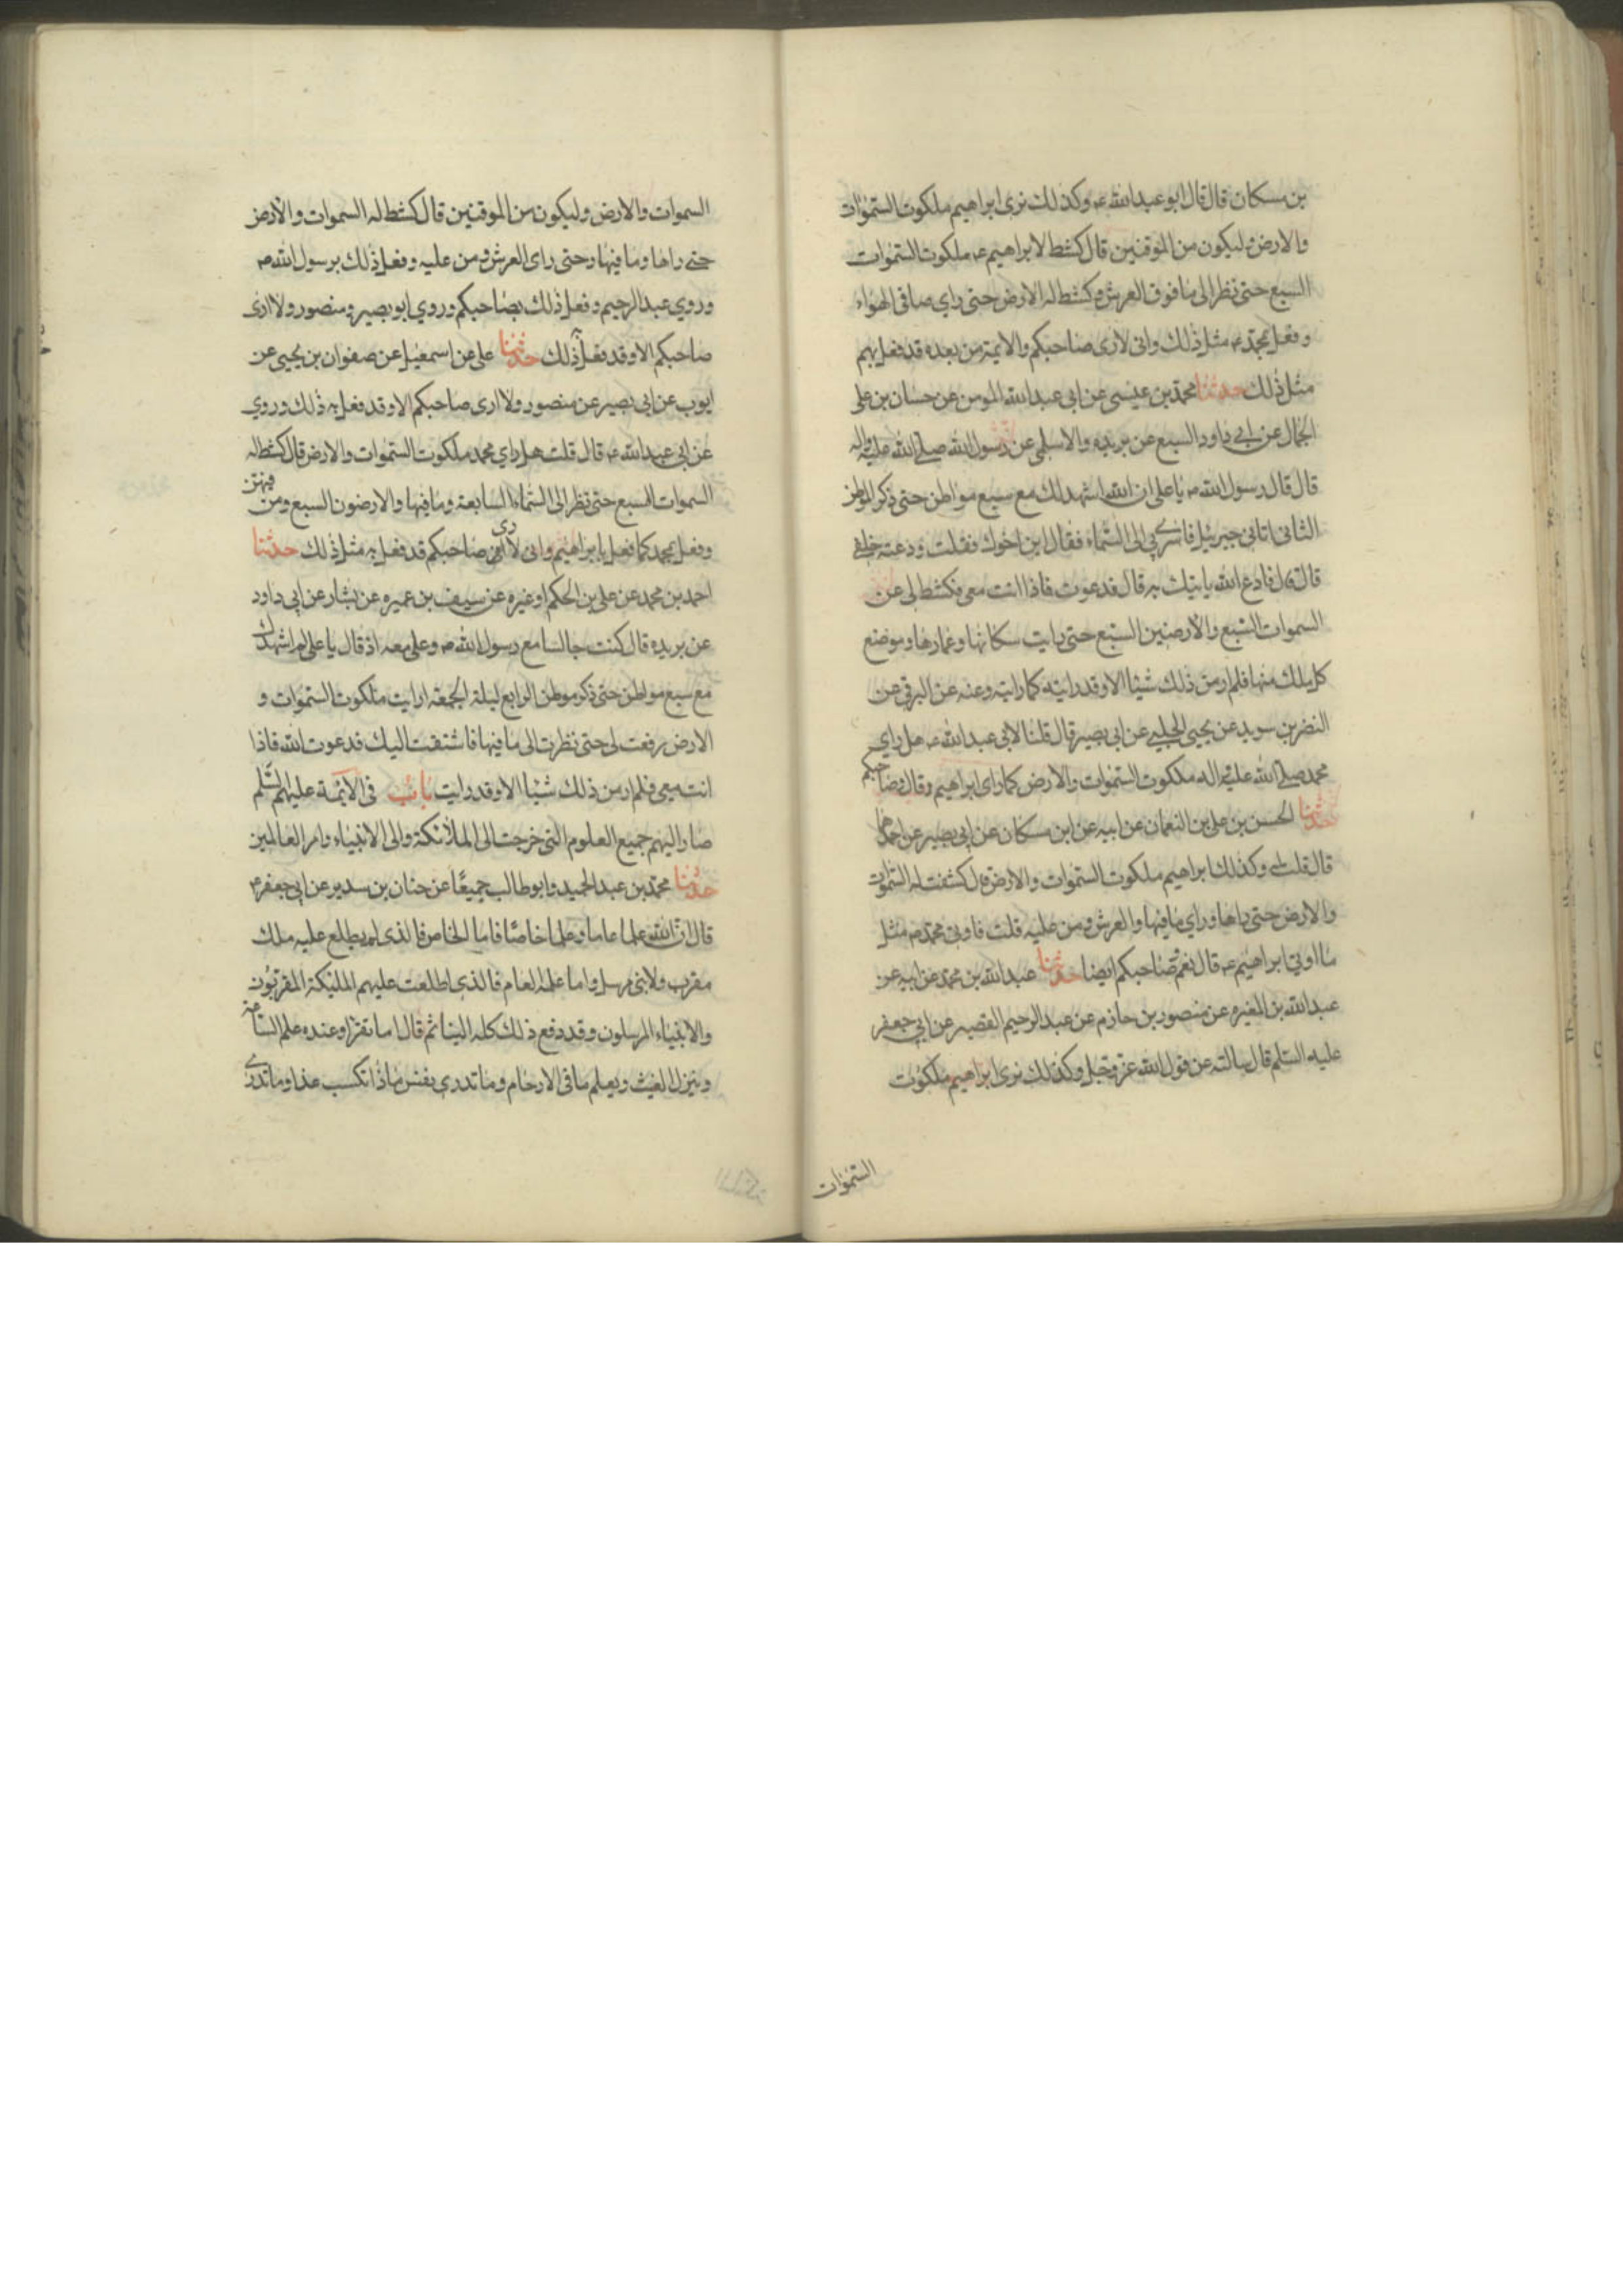 بن مسكان قال قال ابو عبدالله ع وكذلك نرى ابراهيم ملكوت السموات
والارض وليكون من الموقنين قال كشط لابراهيم ع ملكوت السموات
السبع حتى نظر الى ما فوق العرش وكشط له الارض حتى راي ما في الهواء
وفعل بمحمد ص مثل ذلك واني لارى صاحبكم والائمة من بعده قد فعل بهم
مثل ذلك حدثنا محمد بن عيسى عن ابي عبدالله المومن عن حسان بن علي
الجمال عن ابي داود السبع عن بريده والاسلمي عن رسول الله صلى الله عليه واله
قال قال رسول الله ص يا علي ان الله اشهدك مع سبع مواطن حتى ذكر الموطن
الثاني اتاني جبرئيل فاسرى بي الى السماء فقال اين اخوك فقلت ودعته خلفي
قال قال فادع الله ياتيك به قال فدعوت فاذا انت معي فكشط لي عن
السموات السبع والارضين السبع حتى رايت سكانها وعمارها وموضع
كل ملك منها فلم ار من ذلك شيئا الا وقد رايته كما رايته وعنه عن البرقي عن
النضر بن سويد عن يحيى الحلبي عن ابي بصير قال قلنا لابي عبدالله ع هل راي
محمد صلى الله عليه واله ملكوت السموات والارض كما راى ابراهيم وقال وصاحبكم
حدثنا الحسن بن علي بن النعمان عن ابيه عن ابن مسكان عن ابي بصير عن احدهما
قال قلت له وكذلك ابراهيم ملكوت السموات والارض قال كشفت له السموات
والارض حتى راها وراي ما فيها والعرش ومن عليه قلت فاوتي محمد ص مثل
ما اوتي ابراهيم ع قال نعم وصاحبكم ايضا حدثنا عبدالله بن محمد عن ابيه عن
عبدالله بن المغيره عن منصور بن حازم عن عبدالرحيم القصير عن ابي جعفر
عليه السلم قال سالته عن قول الله عز وجل وكذلك نرى ابراهيم ملكوت
السموات
السموات والارض وليكون من الموقنين قال كشط له السموات والارض
حتى راها وما فيها وحتى راى العرش ومن عليه وفعل ذلك برسول الله ص
وروي عبدالرحيم وفعل ذلك بصاحبكم وروي ابو بصير ومنصور ولا ارى
صاحبكم الا وقد فعل به ذلك حدثنا علي عن اسمعيل عن صفوان بن يحيى عن
ايوب عن ابي بصير عن منصور ولا ارى صاحبكم الا وقد فعل به ذلك وروي
عن ابي عبدالله ع قال قلت هل راي محمد ملكوت السموات والارض قال كشط له
السموات السبع حتى نظر الى السماء السابعة وما فيها والارضون السبع ومن فيهن
وفعل بمحمد كما فعل بابراهيم واني لارى صاحبكم قد فعل به مثل ذلك حدثنا
احمد بن محمد عن علي بن الحكم او غيره عن سيف بن عميره عن بشار عن ابي داود
عن بريده قال كنت جالسا مع رسول الله ص وعلي معه اذ قال يا علي الم اشهدك
مع سبع مواطن حتى ذكر موطن الرابع ليلة الجمعة اوايت ملكوت السموات و
الارض رفعت لي حتى نظرت الى ما فيها فاشتقت اليك فدعوت الله فاذا
انت معي فلم ار من ذلك شيئا الا وقد رايت باب في الائمة عليهم السلم
صار اليهم جميع العلوم التي خرجت الى الملائكة والى الانبياء وامر العالمين
حدثنا محمد بن عبدالحميد وابو طالب جميعا عن حنان بن سدير عن ابي جعفر ع
قال ان لله علما عاما وعلما خاصا فاما الخاص فالذي لم يطلع عليه ملك
مقرب ولا نبي مرسل واما علمه العام فالذي اطلعت عليهم الملئكة المقربون
والانبياء المرسلون وقد دفع ذلك كله الينا ثم قال اما تقرا وعنده علم الساعة
وينزل الغيث ويعلم ما في الارحام وما تدري نفس ماذا تكسب غدا وما تدري